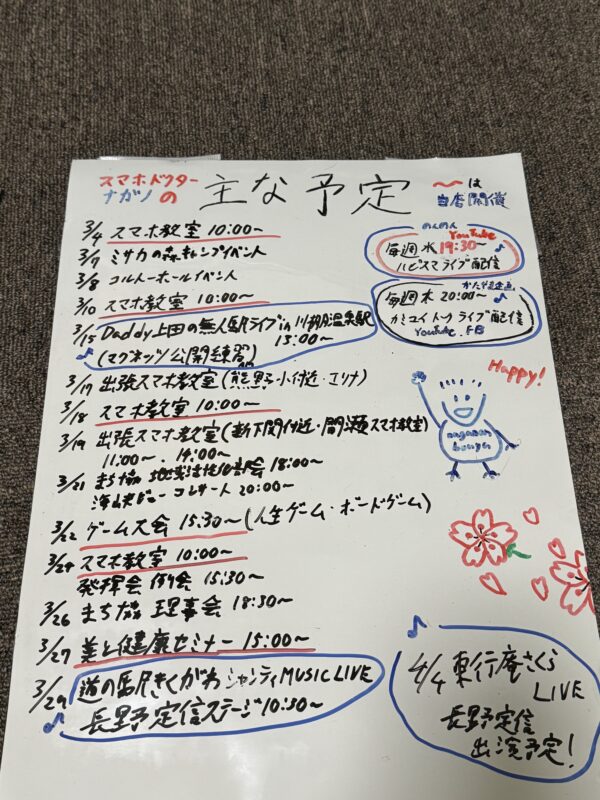 スマホドクター
ナガノの 主な予定
〜は
当店開催
3/4 スマホ教室 10:00〜
3/7 ミサカの森キャンプイベント
3/8 コルトーホールイベント
3/10 スマホ教室 10:00〜
3/15 Daddy上田の無人駅ライブin川棚温泉駅
(マグネッツ公開練習) 13:00〜
3/17 出張スマホ教室(熊野小付近・エリナ)
3/18 スマホ教室 10:00〜
3/19 出張スマホ教室(新下関付近・間瀬スマホ教室)
11:00〜, 14:00〜
3/21 まち協 地域活性化部会 18:00〜
コンサート 20:00〜
3/22 ゲーム大会 15:30〜(人生ゲーム・ボードゲーム)
3/24 スマホ教室 10:00〜
発揮会 例会 15:30〜
3/26 まち協 理事会 18:30〜
3/27 美と健康セミナー 15:00〜
3/29 道の駅きくがわ シャンティMUSIC LIVE
長野定信ステージ10:30〜
のんのん YouTube
毎週水19:30〜
ハピスマライブ配信
毎週木 20:00〜
カミコイトークライブ配信
YouTube.FB
Happy!
4/4 東行庵さくら
LIVE
長野定信
出演予定!